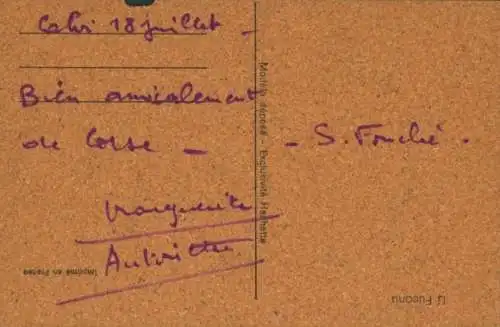 Calvi 18 juillet -
Bien amicalement
de Corse -
Marguerite
- S. Fouché -
Modèle déposé - Exclusivité Hachette
Imprimé en France
U Fucone